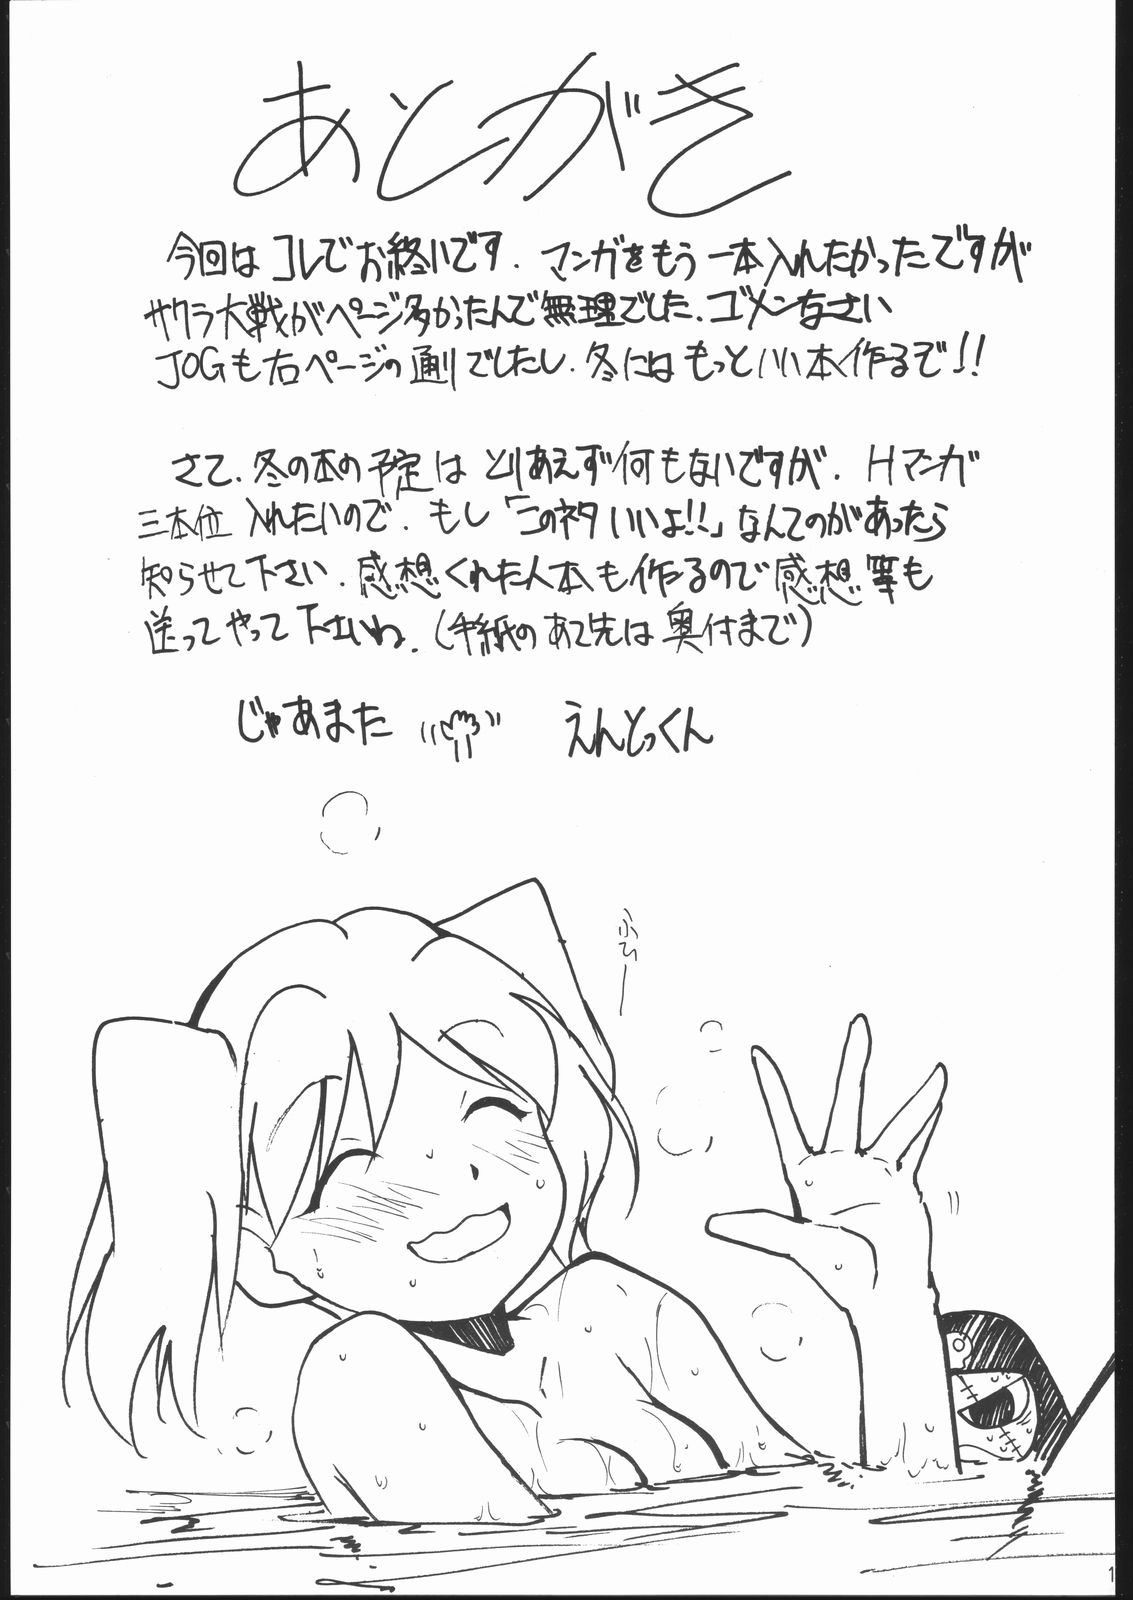 あとがき
今回はコレでお終いです.マンガをもう一本入れたかったですが
サクラ大戦がページ多かったんで無理でした.ゴメンなさい
JOGも右ページの通りでしたし.冬にはもっといい本作るぞ!!
さて.冬の本の予定はとりあえず何もないですが.Hマンガ
三本位入れたいので.もし「このネタいいよ!!」なんてのがあったら
知らせて下さい.感想くれた人本も作るので感想等も
送ってやって下さいね.(手紙のあて先は奥付まで)
じゃあまた えんとっくん
ふひー
1